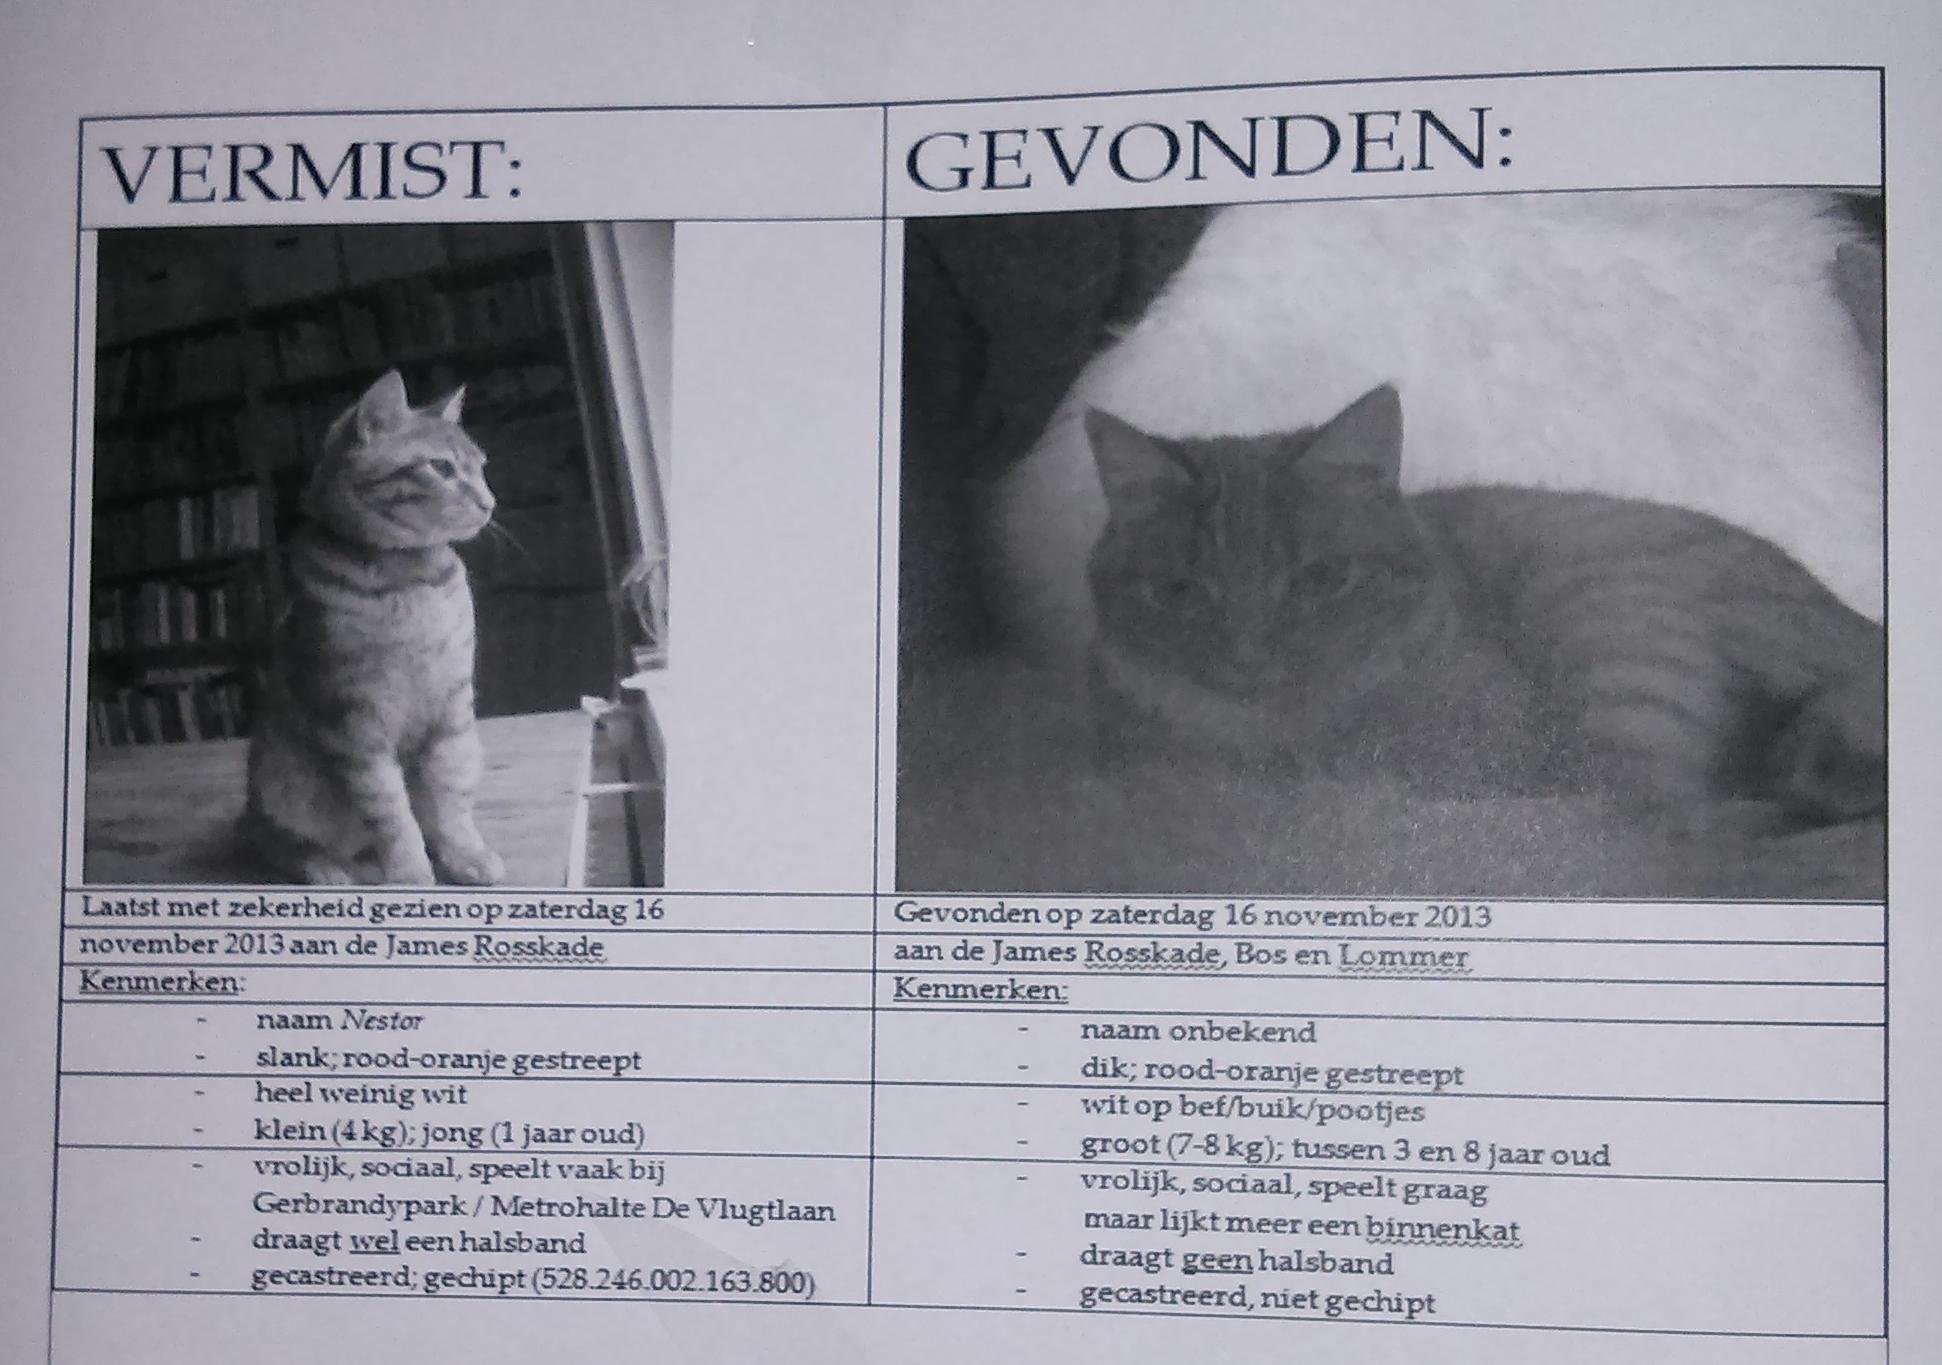 VERMIST:
Laatst met zekerheid gezien op zaterdag 16
november 2013 aan de James Rosskade
Kenmerken:
- naam Nestor
- slank; rood-oranje gestreept
- heel weinig wit
- klein (4 kg); jong (1 jaar oud)
- vrolijk, sociaal, speelt vaak bij
Gerbrandypark / Metrohalte De Vlugtlaan
- draagt wel een halsband
- gecastreerd; gechipt (528.246.002.163.800)
GEVONDEN:
Gevonden op zaterdag 16 november 2013
aan de James Rosskade, Bos en Lommer
Kenmerken:
- naam onbekend
- dik; rood-oranje gestreept
- wit op bef/buik/pootjes
- groot (7-8 kg); tussen 3 en 8 jaar oud
- vrolijk, sociaal, speelt graag
maar lijkt meer een binnenkat
- draagt geen halsband
- gecastreerd, niet gechipt